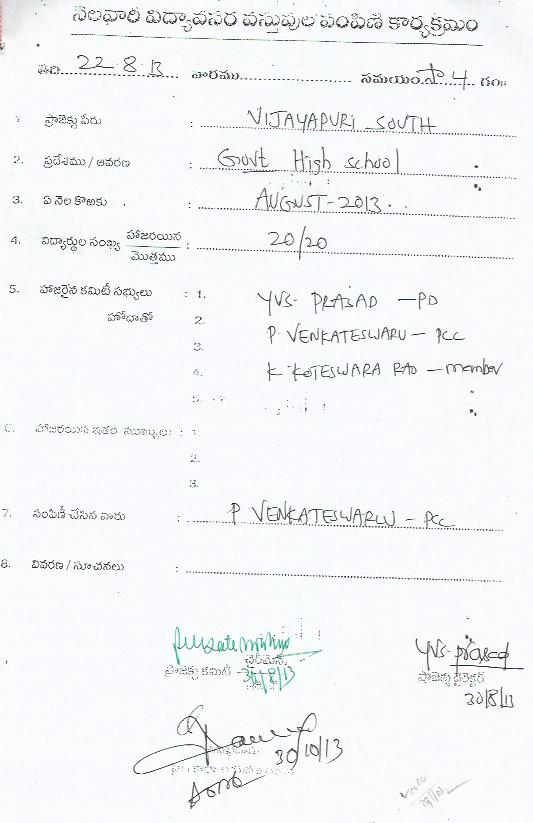 నెలవారి విద్యావసర వస్తువుల పంపిణి కార్యక్రమం
తేది 22.8.13 వారము సమయం సా 4 గం॥
1. ప్రాజెక్టు పేరు : VIJAYAPURI SOUTH
2. ప్రదేశము / ఆవరణ : Govt High school
3. ఏ నెల కొఱకు : AUGUST-2013
4. విద్యార్థుల సంఖ్య హాజరయిన / మొత్తము : 20/20
5. హాజరైన కమిటీ సభ్యులు : 1. YVS- PRASAD - PD
హోదాతో 2. P VENKATESWARU - PCC
3.
4. K KOTESWARA RAO - member
5.
6. హాజరయిన ఇతర ముఖ్యులు : 1.
2.
3.
7. పంపిణీ చేసిన వారు : P VENKATESWARLU - PCC
8. వివరణ / సూచనలు :
ఛైర్మెన్, YVS- prasad
ప్రాజెక్టు కమిటీ 30/8/13 ప్రాజెక్టు డైరెక్టర్
30/8/13
30/10/13